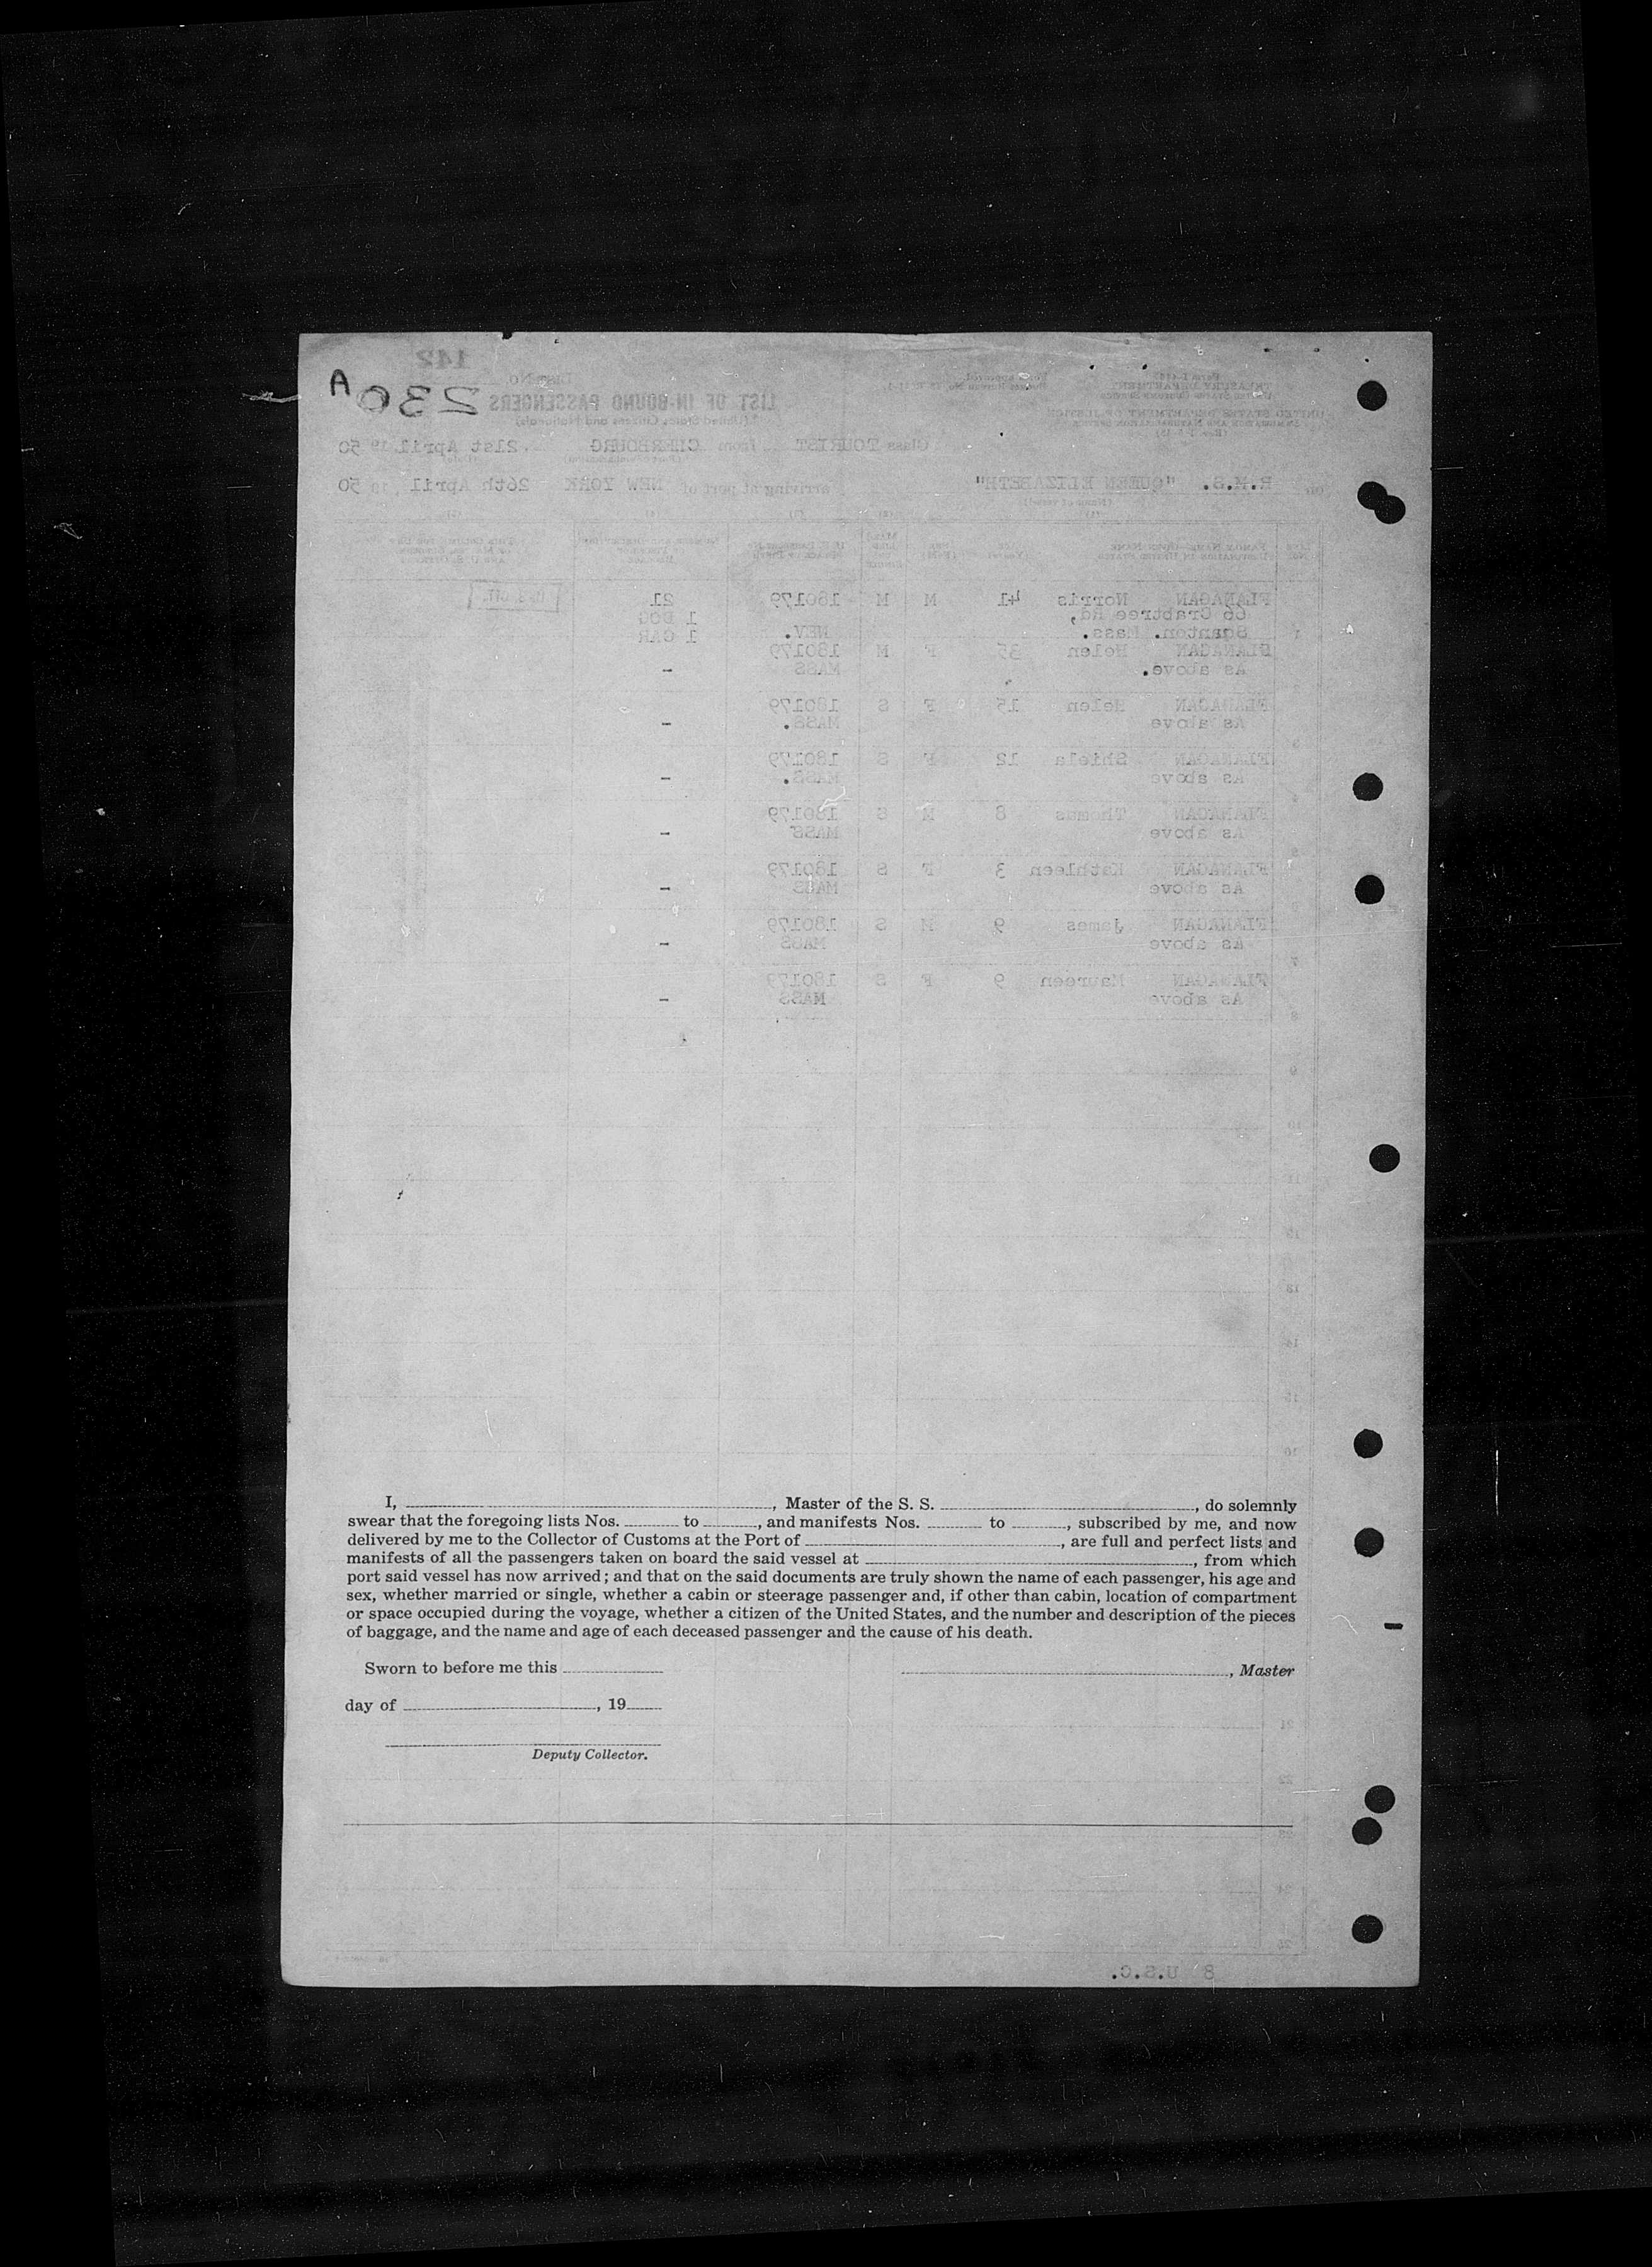 142
A 230
LIST OF IN-BOUND PASSENGERS
(United States Citizens and Nationals)
TREASURY DEPARTMENT
UNITED STATES CUSTOMS SERVICE
UNITED STATES DEPARTMENT OF JUSTICE
IMMIGRATION AND NATURALIZATION SERVICE
Class TOURIST from CHERBOURG, 21st April 19 50
on R.M.S. "QUEEN ELIZABETH" arriving at port of NEW YORK 26th April, 19 50
FLANAGAN Norris 41 M M 180179 21
66 Crabtree Rd, 1 DOG
1 Mass. NEV. 1 CAR
FLANAGAN Helen 35 F M 180179
As above. MASS -
FLANAGAN Helen 15 F S 180179
As above MASS. -
FLANAGAN Shiela 12 F S 180179
As above MASS. -
FLANAGAN Thomas 8 M S 180179
As above MASS -
FLANAGAN Kathleen 3 F S 180179
As above MASS -
FLANAGAN James 9 M S 180179
As above MASS -
FLANAGAN Maureen 9 F S 180179
As above MASS -
I, , Master of the S. S. , do solemnly
swear that the foregoing lists Nos. to , and manifests Nos. to , subscribed by me, and now
delivered by me to the Collector of Customs at the Port of , are full and perfect lists and
manifests of all the passengers taken on board the said vessel at , from which
port said vessel has now arrived; and that on the said documents are truly shown the name of each passenger, his age and
sex, whether married or single, whether a cabin or steerage passenger and, if other than cabin, location of compartment
or space occupied during the voyage, whether a citizen of the United States, and the number and description of the pieces
of baggage, and the name and age of each deceased passenger and the cause of his death.
Sworn to before me this , Master
day of , 19
Deputy Collector.
8 U.S.C.